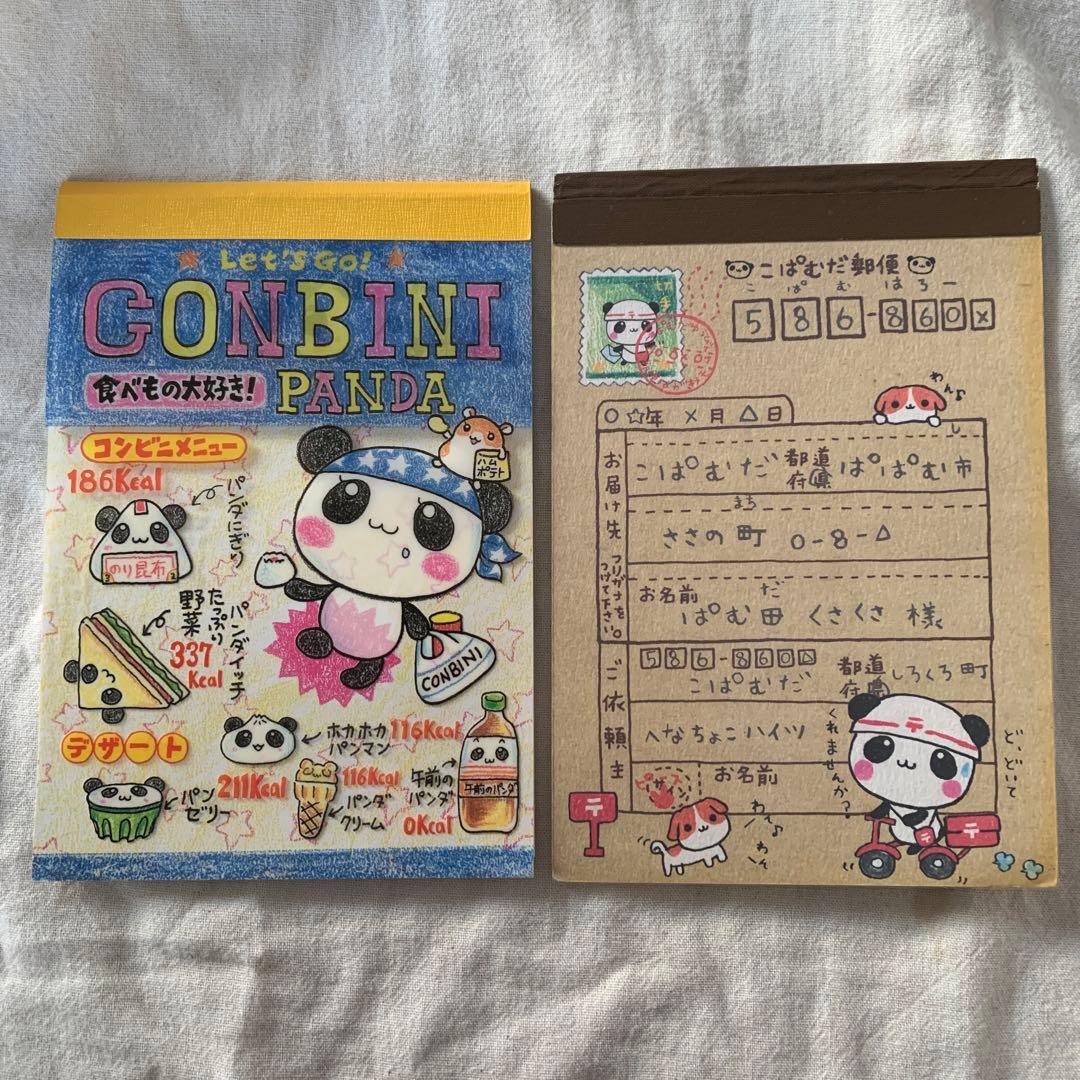 Let's Go!
CONBINI
食べもの大好き!
PANDA
コンビニメニュー
ハム
ポテト
186Kcal
パンダにぎり
のり昆布
野菜
たっぷり
パンダイッチ
337
Kcal
CONBINI
デザート
ホカホカ
パンマン
116Kcal
パン
ゼリー
211Kcal
116Kcal
パンダ
クリーム
午前の
パンダ
0Kcal
午前のパンダ
こぱむだ郵便
こ ぱ む は ろ ー
586-860x
切手
わん♪
○☆年 ×月 △日
お届け先
フリガナをつけて下さい。
こぱむだ 都道府県 ぱぱむ市
まち
ささの町 0-8-△
だ
お名前
ぱむ田 くさくさ 様
ご依頼主
586-860△
こぱむだ 都道府県 しろくろ町
へなちょこハイツ
お名前
サイン
くれませんか?
ど、どいて
〒
わん♪
わん
〒